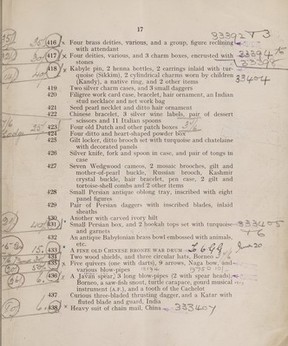 17
416 Four brass deities, various, and a group, figure reclining
with attendant
417 Four deities, various, and 3 charm boxes, encrusted with
stones
418 Kobyle pin, 2 henna bottles, 2 earrings inlaid with tur-
quoise (Sikkim), 2 cylindrical charms worn by children
(Kandy), a native ring, and 2 other items
419 Two silver charm cases, and 3 small daggers
420 Filigree work card case, bracelet, hair ornament, an Indian
stud necklace and net work bag
421 Seed pearl necklet and ditto hair ornament
422 Chinese bracelet, 3 silver wine labels, pair of dessert
scissors and 11 Italian spoons
423 Four old Dutch and other patch boxes
424 Four ditto and heart-shaped powder box
425 Gilt locket, ditto brooch set with turquoise and chatelaine
with decorated panels
426 Silver knife, fork and spoon in case, and pair of tongs in
case
427 Seven Wedgwood cameos, 2 mosaic brooches, gilt and
mother-of-pearl buckle, Russian brooch, Kashmir
crystal buckle, hair bracelet, pen case, 2 gilt and
tortoise-shell combs and 2 other items
428 Small Persian antique oblong tray, inscribed with eight
panel figures
429 Pair of Persian daggers with inscribed blades, ivory
shields
430 Another with carved ivory hilt
431 Small Persian box, and 2 hookah tops set with turquoise
and garnets
432 An antique Babylonian brass bowl embossed with animals,
etc.
433 A FINE OLD CHINESE BRONZE WAR DRUM
434 Two wood shields, and three circular hats, Borneo
435 Five quivers (one with darts), 9 arrows, Naga bow, and
various blow-pipes
436 A Javan spear, 3 long blow-pipes (2 with spear heads),
Borneo, a saw-fish snout, turtle carapace, gourd musical
instrument (A.F.), and a tooth of the Cachelot
437 Curious three-bladed thrusting dagger, and a Katar with
fluted blade and guard, India
438 Heavy suit of chain mail, China
33404
33407